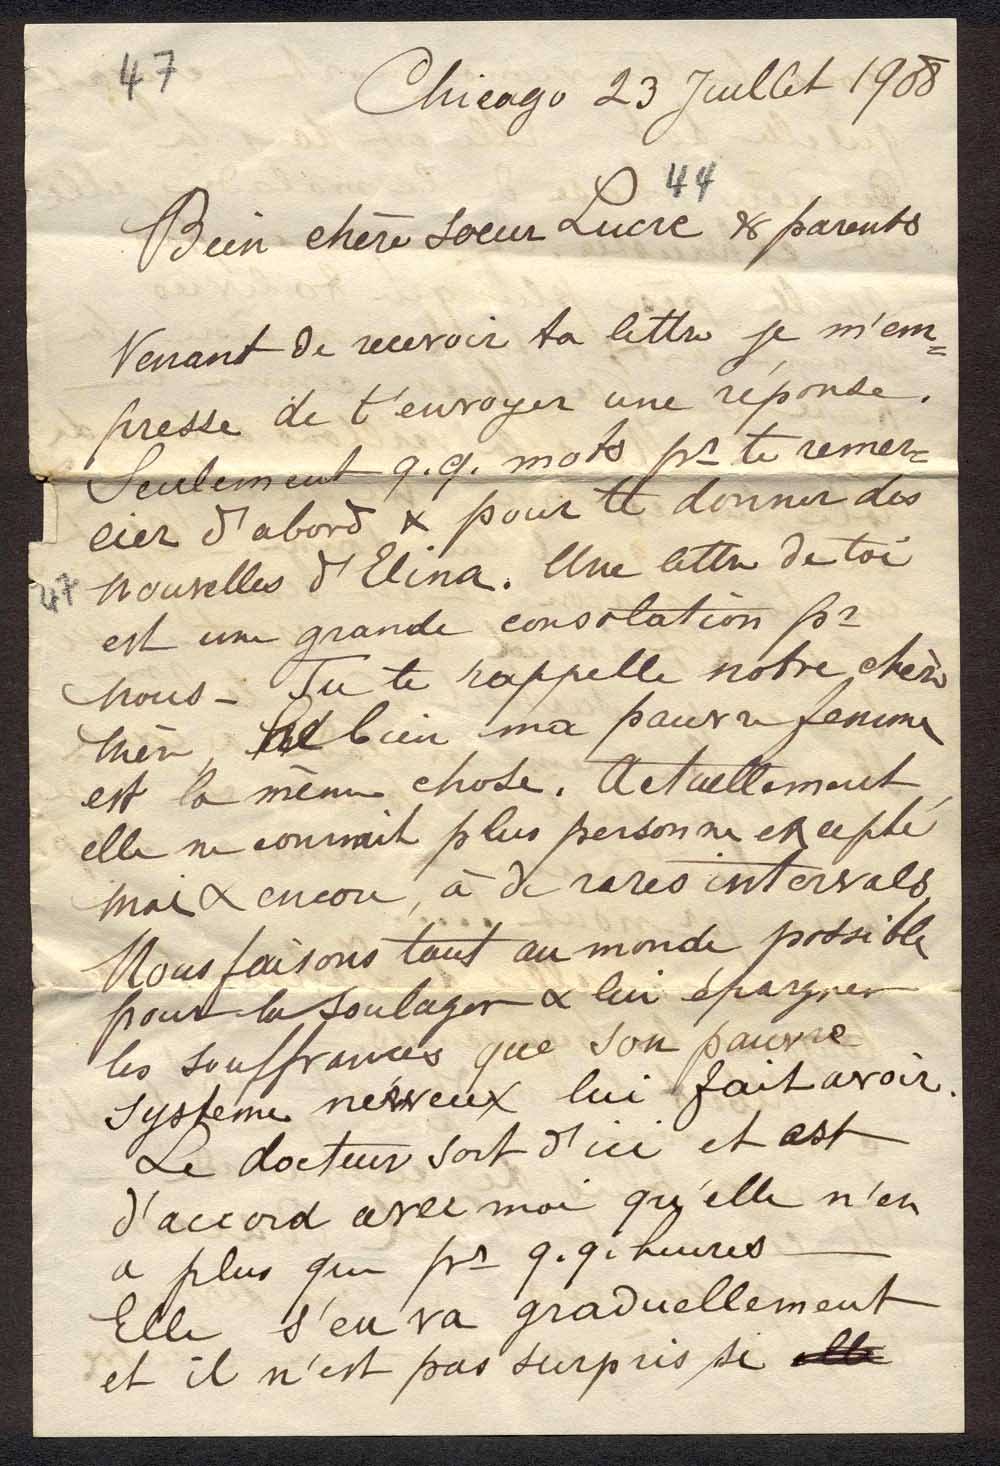 47
Chicago 23 Juillet 1908
44
Bien chère soeur Lucre & parents
Venant de recevoir ta lettre je m'em=
presse de t'envoyer une réponse.
Seulement q.q. mots pr te remer=
cier d'abord & pour te donner des
nouvelles d'Elina. Une lettre de toi
47
est une grande consolation pr
nous - Tu te rappelle notre chère
mère, bien ma pauvre femme
est la même chose. Actuellement
elle ne connait plus personne excepté
moi & encore, à de rares intervals,
Nous faisons tout au monde possible
pour la soulager & lui épargner
les souffrances que son pauvre
systeme nerveux lui fait avoir.
Le docteur sort d'ici et est
d'accord avec moi qu'elle n'en
a plus que pr q.q. heures —
Elle s'en va graduellement
et il n'est pas surpris si elle